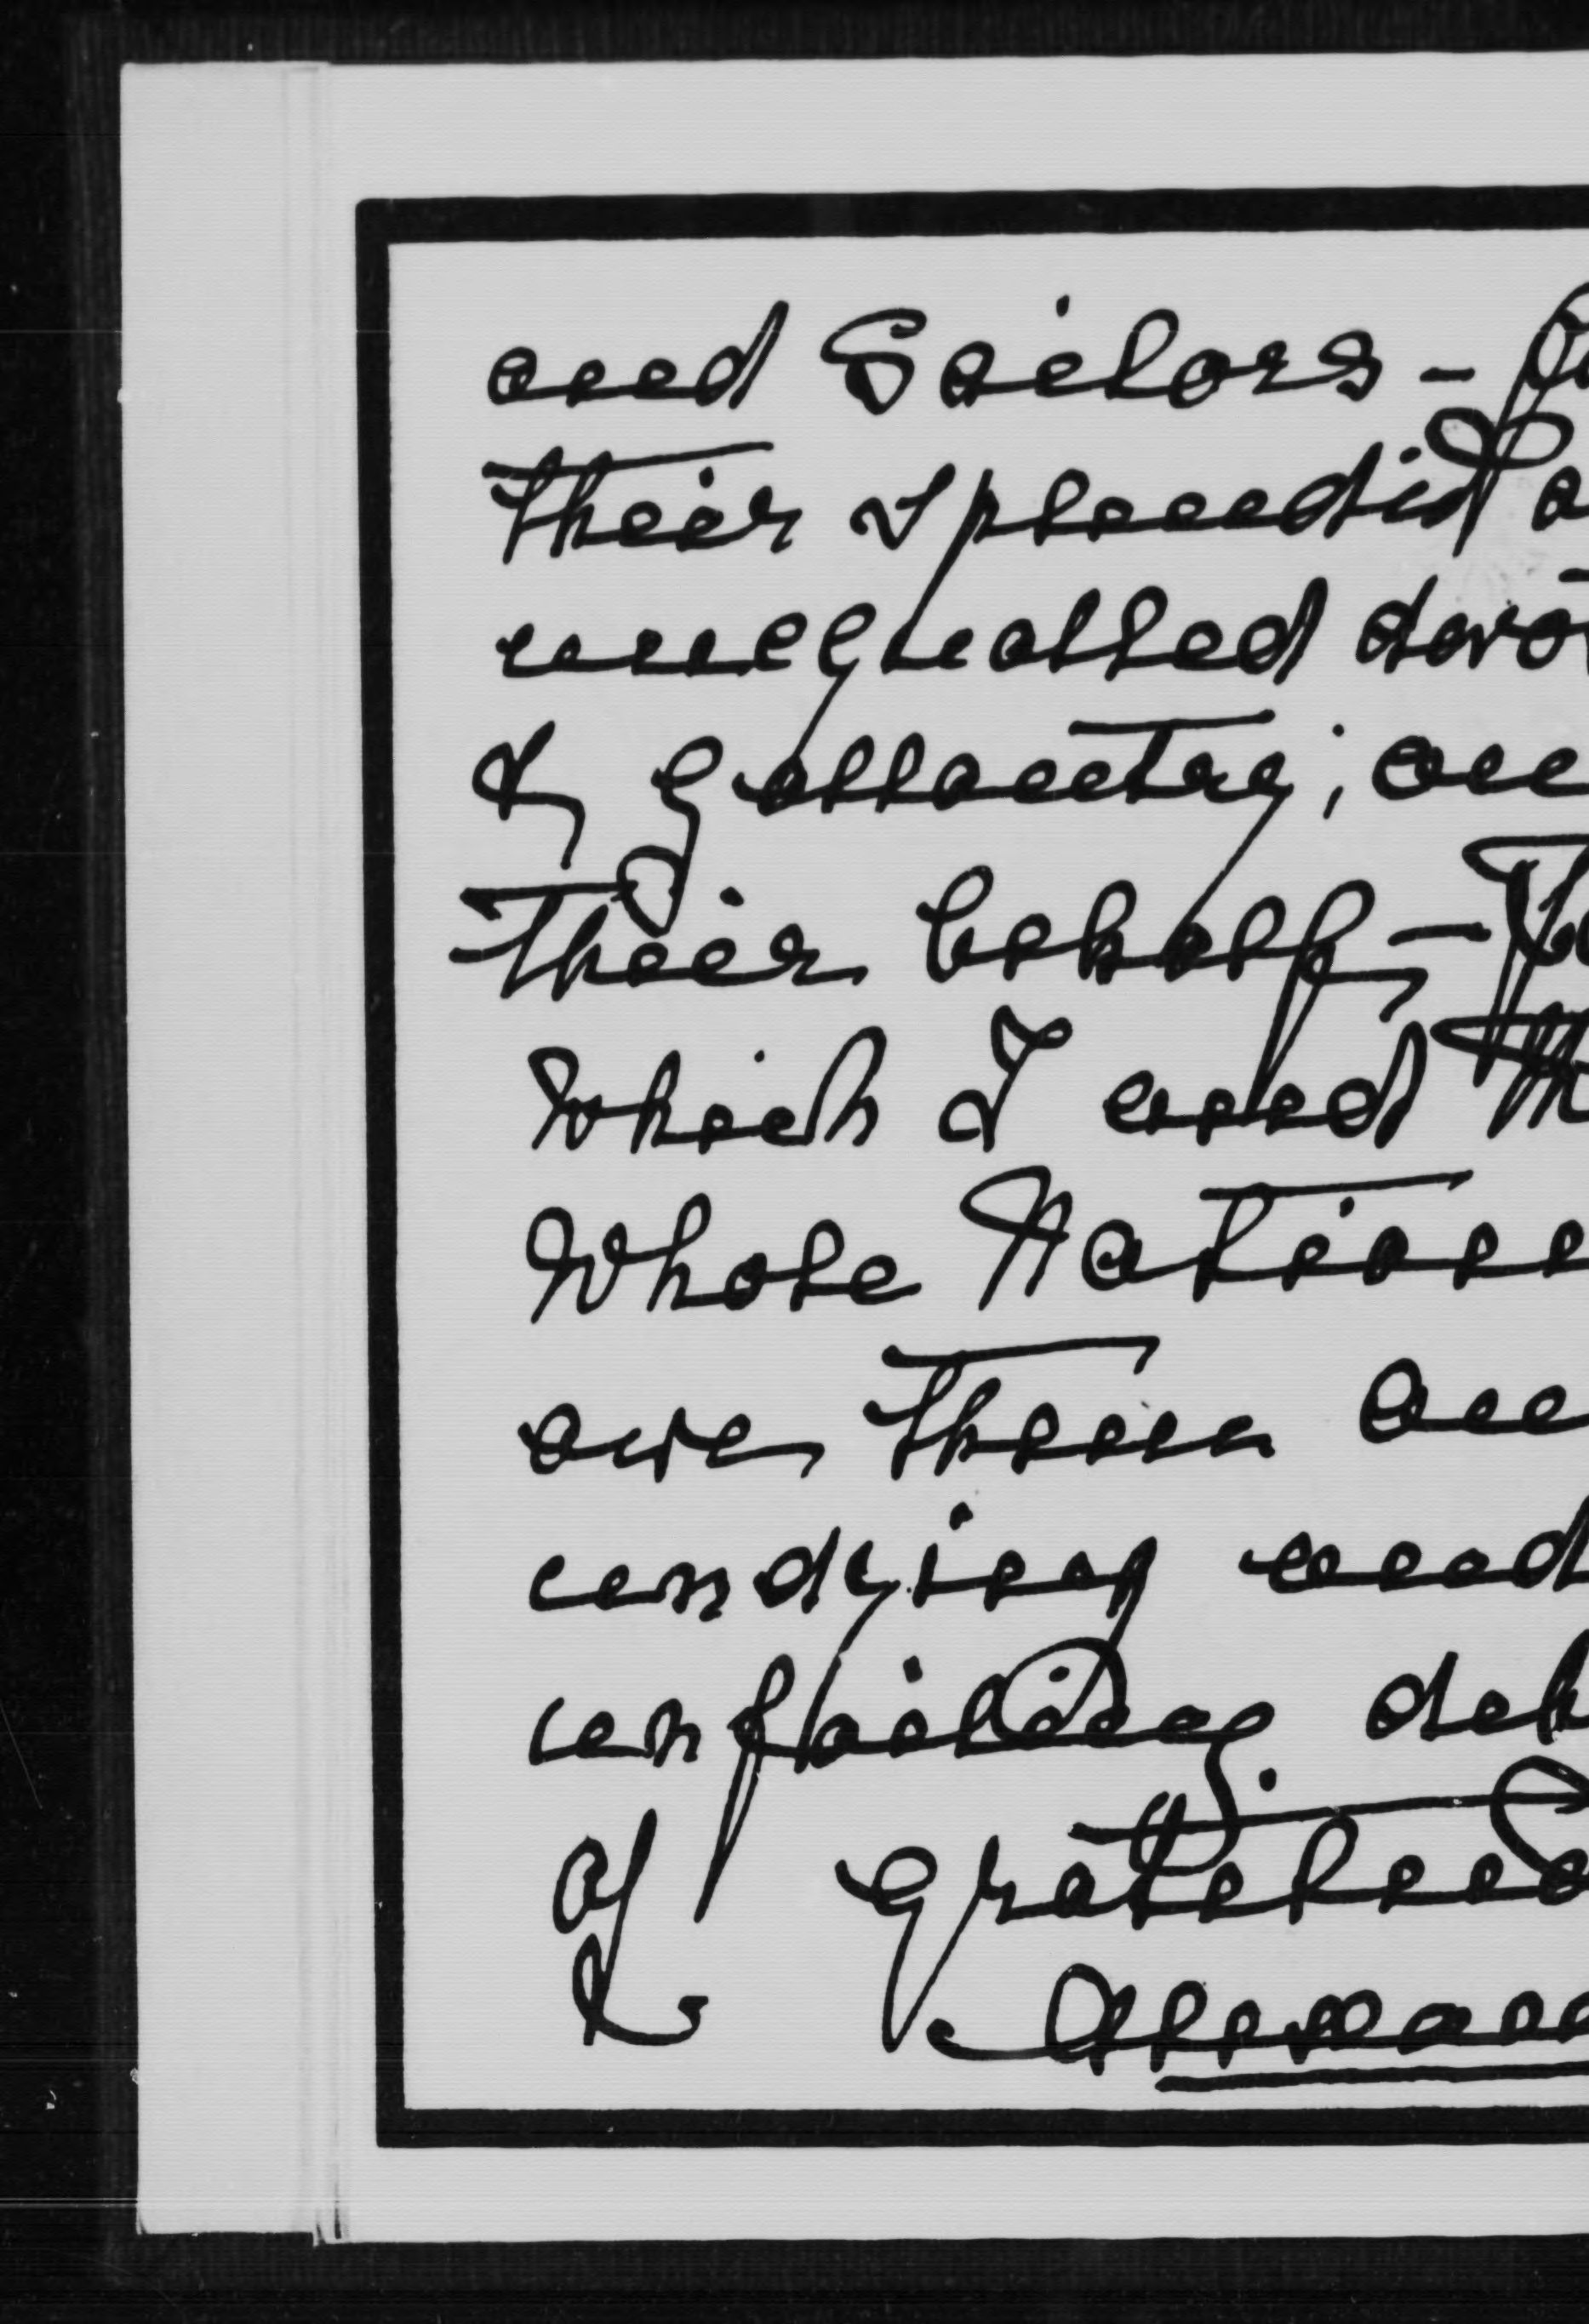 and Sailors –
their splendid
unequalled devot
& gallantry; an
their behalf, –
which I and
whole Nation
owe them an
undying and
unfailing deb
of gratitud
& Alexan